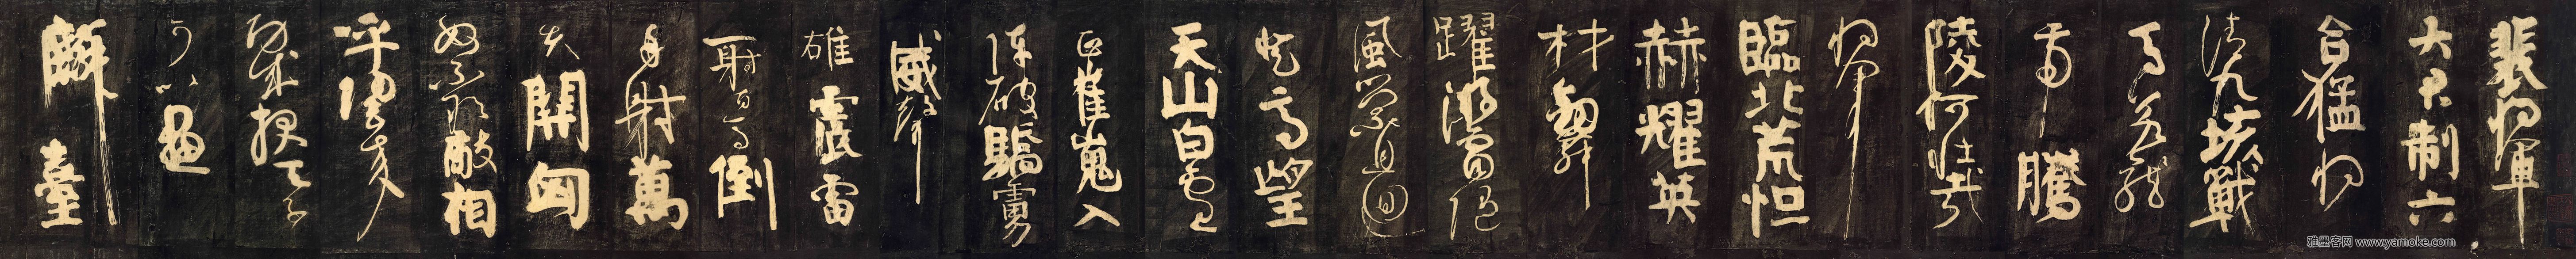 裴将軍
大君制六
合猛将
清九垓戰
馬若龍
虎騰
陵何壯哉
将軍
臨北荒恒
赫耀英
材劒舞
躍游雷隨
風縈且迴
登高望
天山白雲
正崔嵬入
陣破驕虜
威聲
雄震雷
一射百馬倒
再射萬
夫開匈
奴不敢敵相
呼歸去來
功成報天子
可以畫
麟臺
雅墨客网 www.yamoke.com